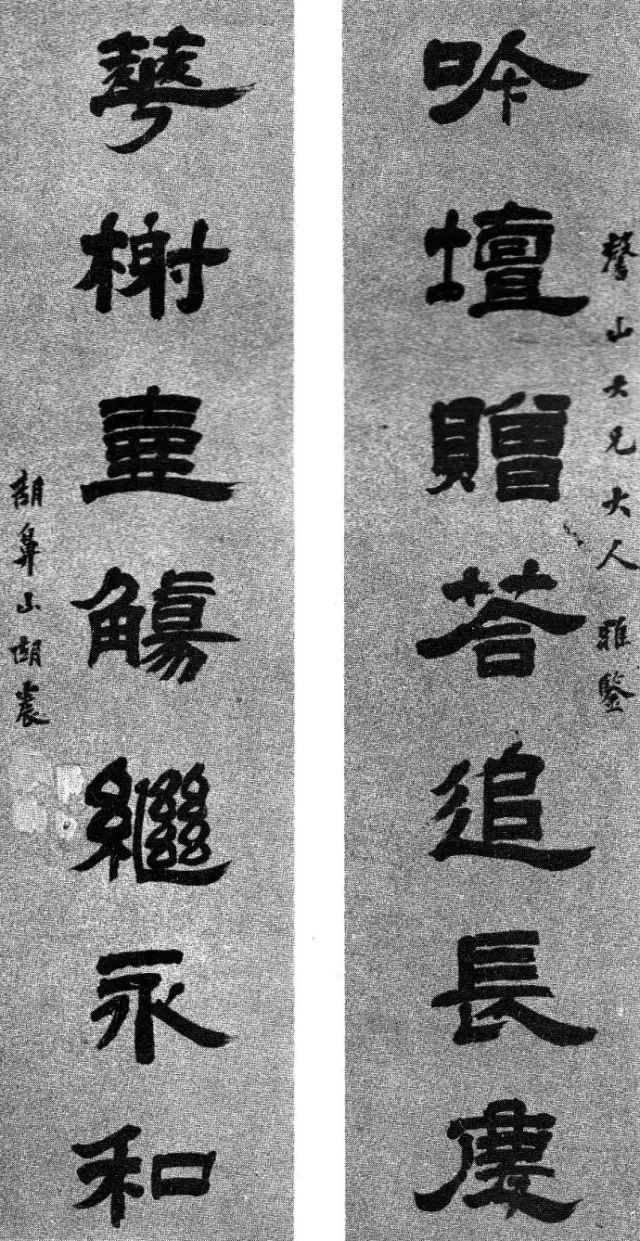 山大兄大人雅鑒
吟壇贈荅追長慶
華榭壺觴繼永和
胡鼻山胡震